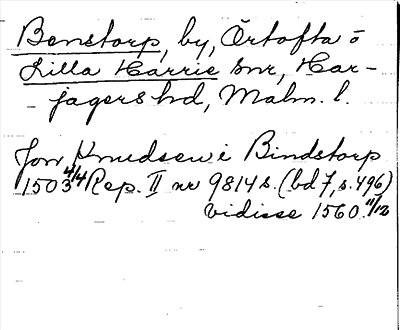 Benstorp, by, Örtofta o
Lilla Harrie snr, Har-
- jagers hd, Malm. l.
Jon Knudsen i Bindstorp
1503 4/4 Rep. II nr 9814 s. (bd 7, s. 496)
vidisse 1560 11/12